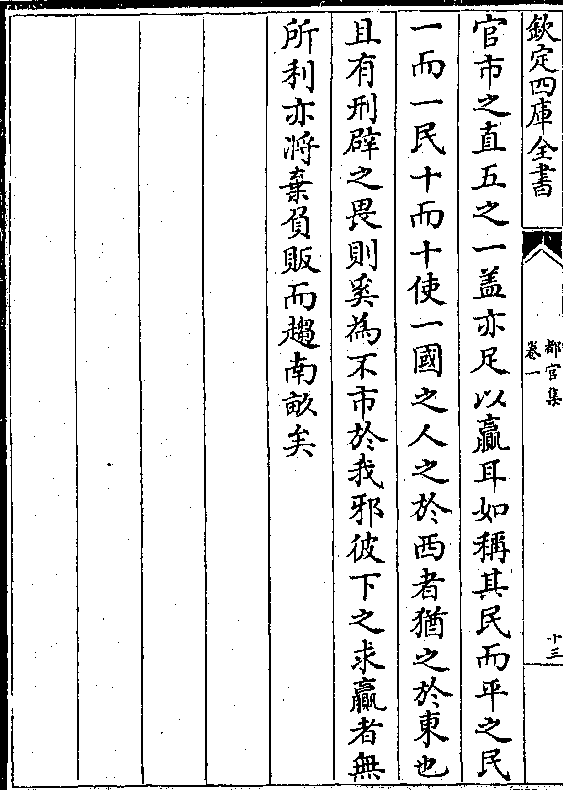 欽定四庫全書
都官集
卷一
十三
官市之直五之一盖亦足以贏耳如稱其民而平之民
一而一民十而十使一國之人之於西者猶之於東也
且有刑辟之畏則奚為不市於我邪彼下之求贏者無
所利亦將棄負販而趨南畝矣